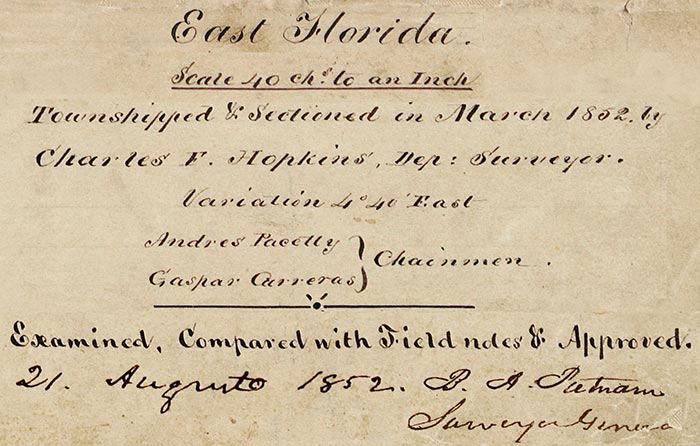 East Florida.
Scale 40 chs. to an Inch
Townshipped & Sectioned in March 1852, by
Charles F. Hopkins, Dep: Surveyor.
Variation 4° 40' East
Andres Pacetty
Gaspar Carreras } Chainmen.
Examined, Compared with Field notes & Approved.
21. Augusto 1852. B. A. Putnam
Surveyor General